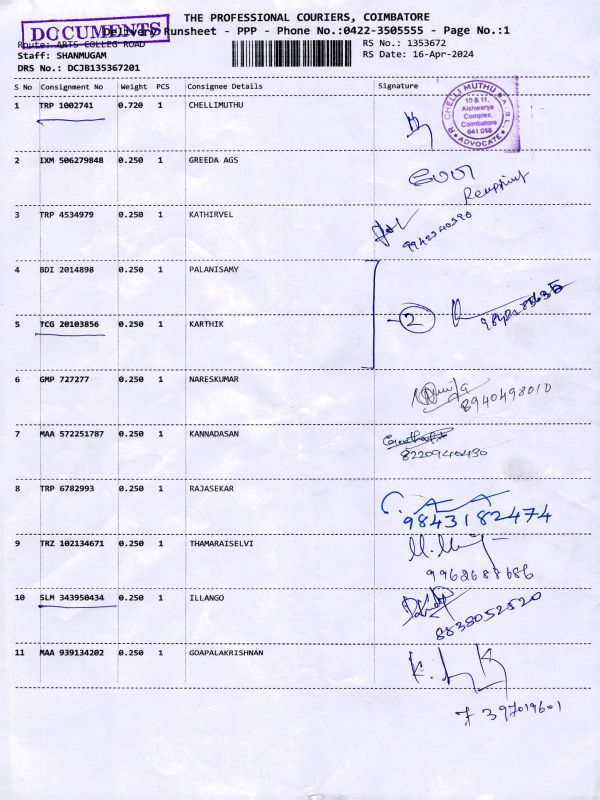 THE PROFESSIONAL COURIERS, COIMBATORE
DOCUMENTS
Delivery Runsheet - PPP - Phone No.:0422-3505555 - Page No.:1
Route: ARTS COLLEG ROAD
RS No.: 1353672
Staff: SHANMUGAM
RS Date: 16-Apr-2024
DRS No.: DCJB135367201
S No Consignment No Weight PCS Consignee Details Signature
1 TRP 1002741 0.720 1 CHELLIMUTHU
R. CHELLI MUTHU B.A.B.L.
10 & 11,
Aishwarya
Complex,
Coimbatore
641 018
ADVOCATE
2 IXM 506279848 0.250 1 GREEDA AGS
3 TRP 4534979 0.250 1 KATHIRVEL
9942340390
4 BDI 2014898 0.250 1 PALANISAMY
2
5 TCG 20103856 0.250 1 KARTHIK
6 GMP 727277 0.250 1 NARESKUMAR
8940498010
7 MAA 572251787 0.250 1 KANNADASAN
8220940430
8 TRP 6782993 0.250 1 RAJASEKAR
9843182474
9 TRZ 102134671 0.250 1 THAMARAISELVI
9962688686
10 SLM 343950434 0.250 1 ILLANGO
8838052520
11 MAA 939134202 0.250 1 GOAPALAKRISHNAN
7397019601